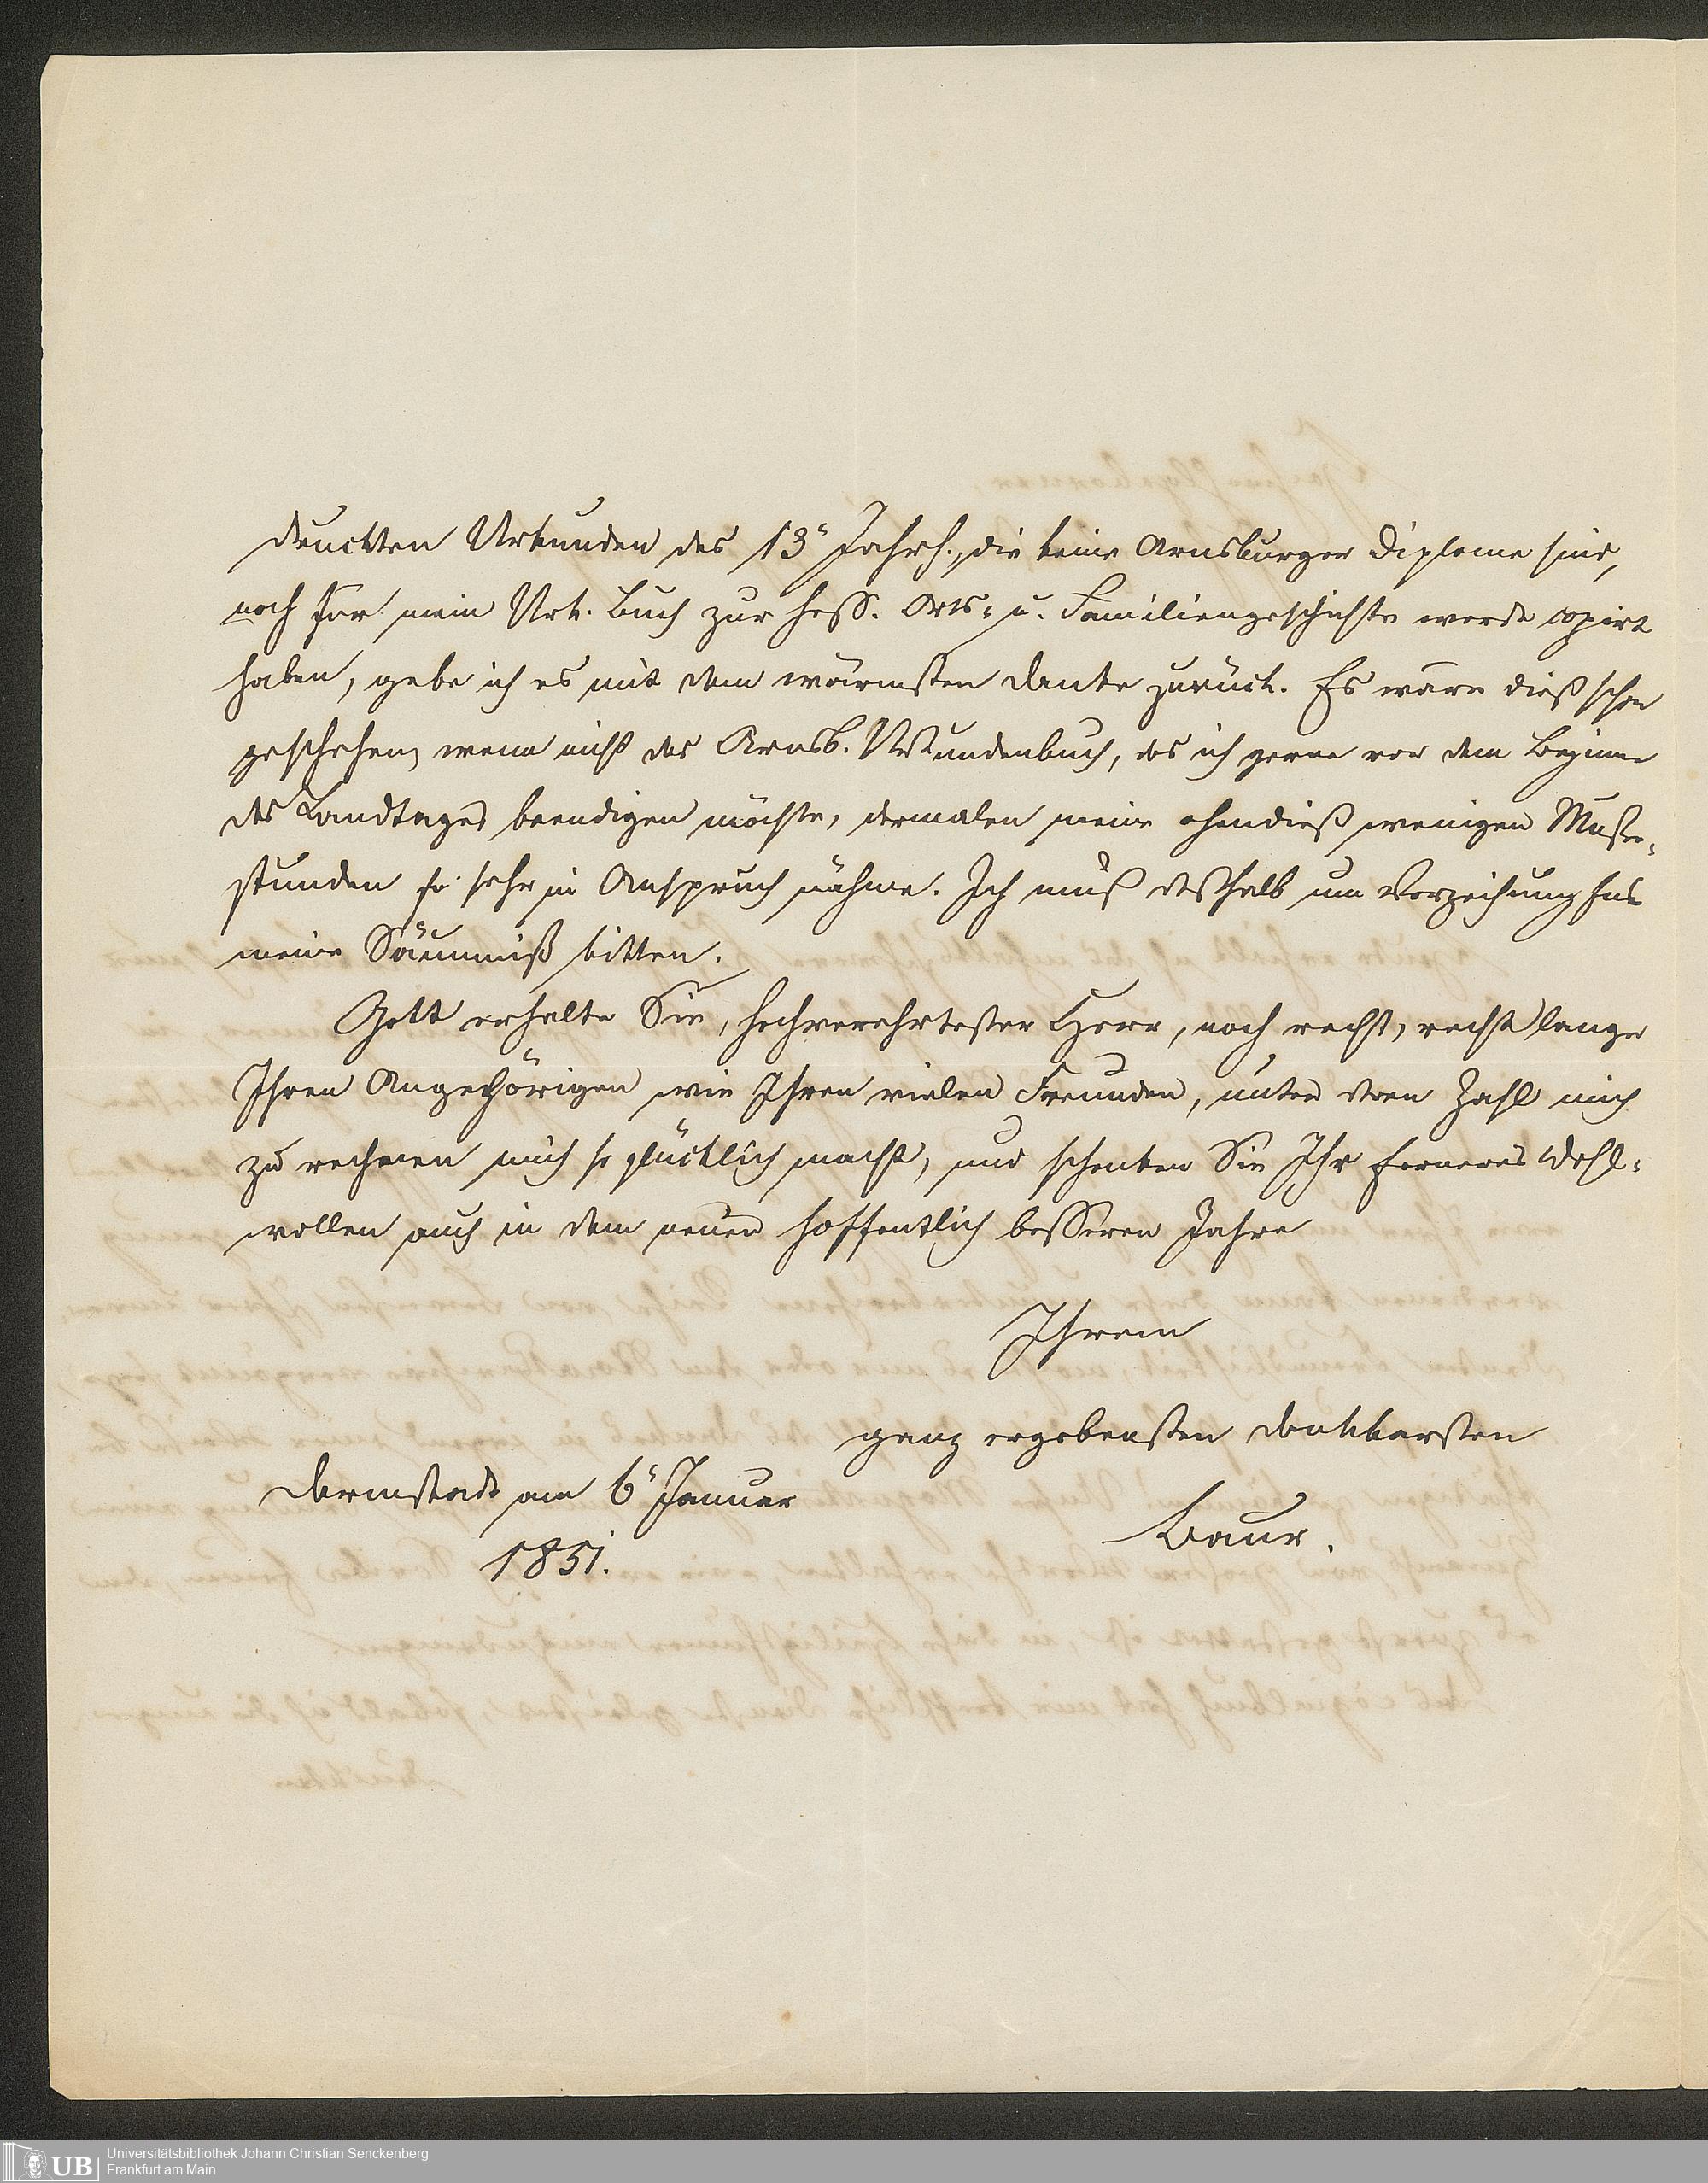 druckten Urkunden des 13ᵗ Jahrh., die keine Arnsburger Diplome sind,
noch für mein Urk. Buch zur hess. Orts- u. Familiengeschichte werde copirt
haben, gebe ich es mit dem wärmsten Danke zurück. Es wäre dieß schon
geschehen, wenn nicht das Arnsb. Urkundenbuch, das ich gerne vor dem Beginne
des Landtages beendigen möchte, dermalen meine ohnedieß wenigen Muße-
stunden so sehr in Anspruch nähme. Ich muß deßhalb um Verzeihung
meine Säumniß bitten.
Gott erhalte Sie, hochverehrtester Herr, noch recht, recht lange
Ihren Angehörigen wie Ihren vielen Freunden, unter deren Zahl mich
zu rechnen mich so glücklich macht, und schenken Sie Ihr ferneres Wohl-
wollen auch in dem neuen hoffentlich besseren Jahre
Ihrem
ganz ergebensten dankbarsten
Darmstadt am 6ᵗ Januar
1851.
Baur.
UB
Universitätsbibliothek Johann Christian Senckenberg
Frankfurt am Main